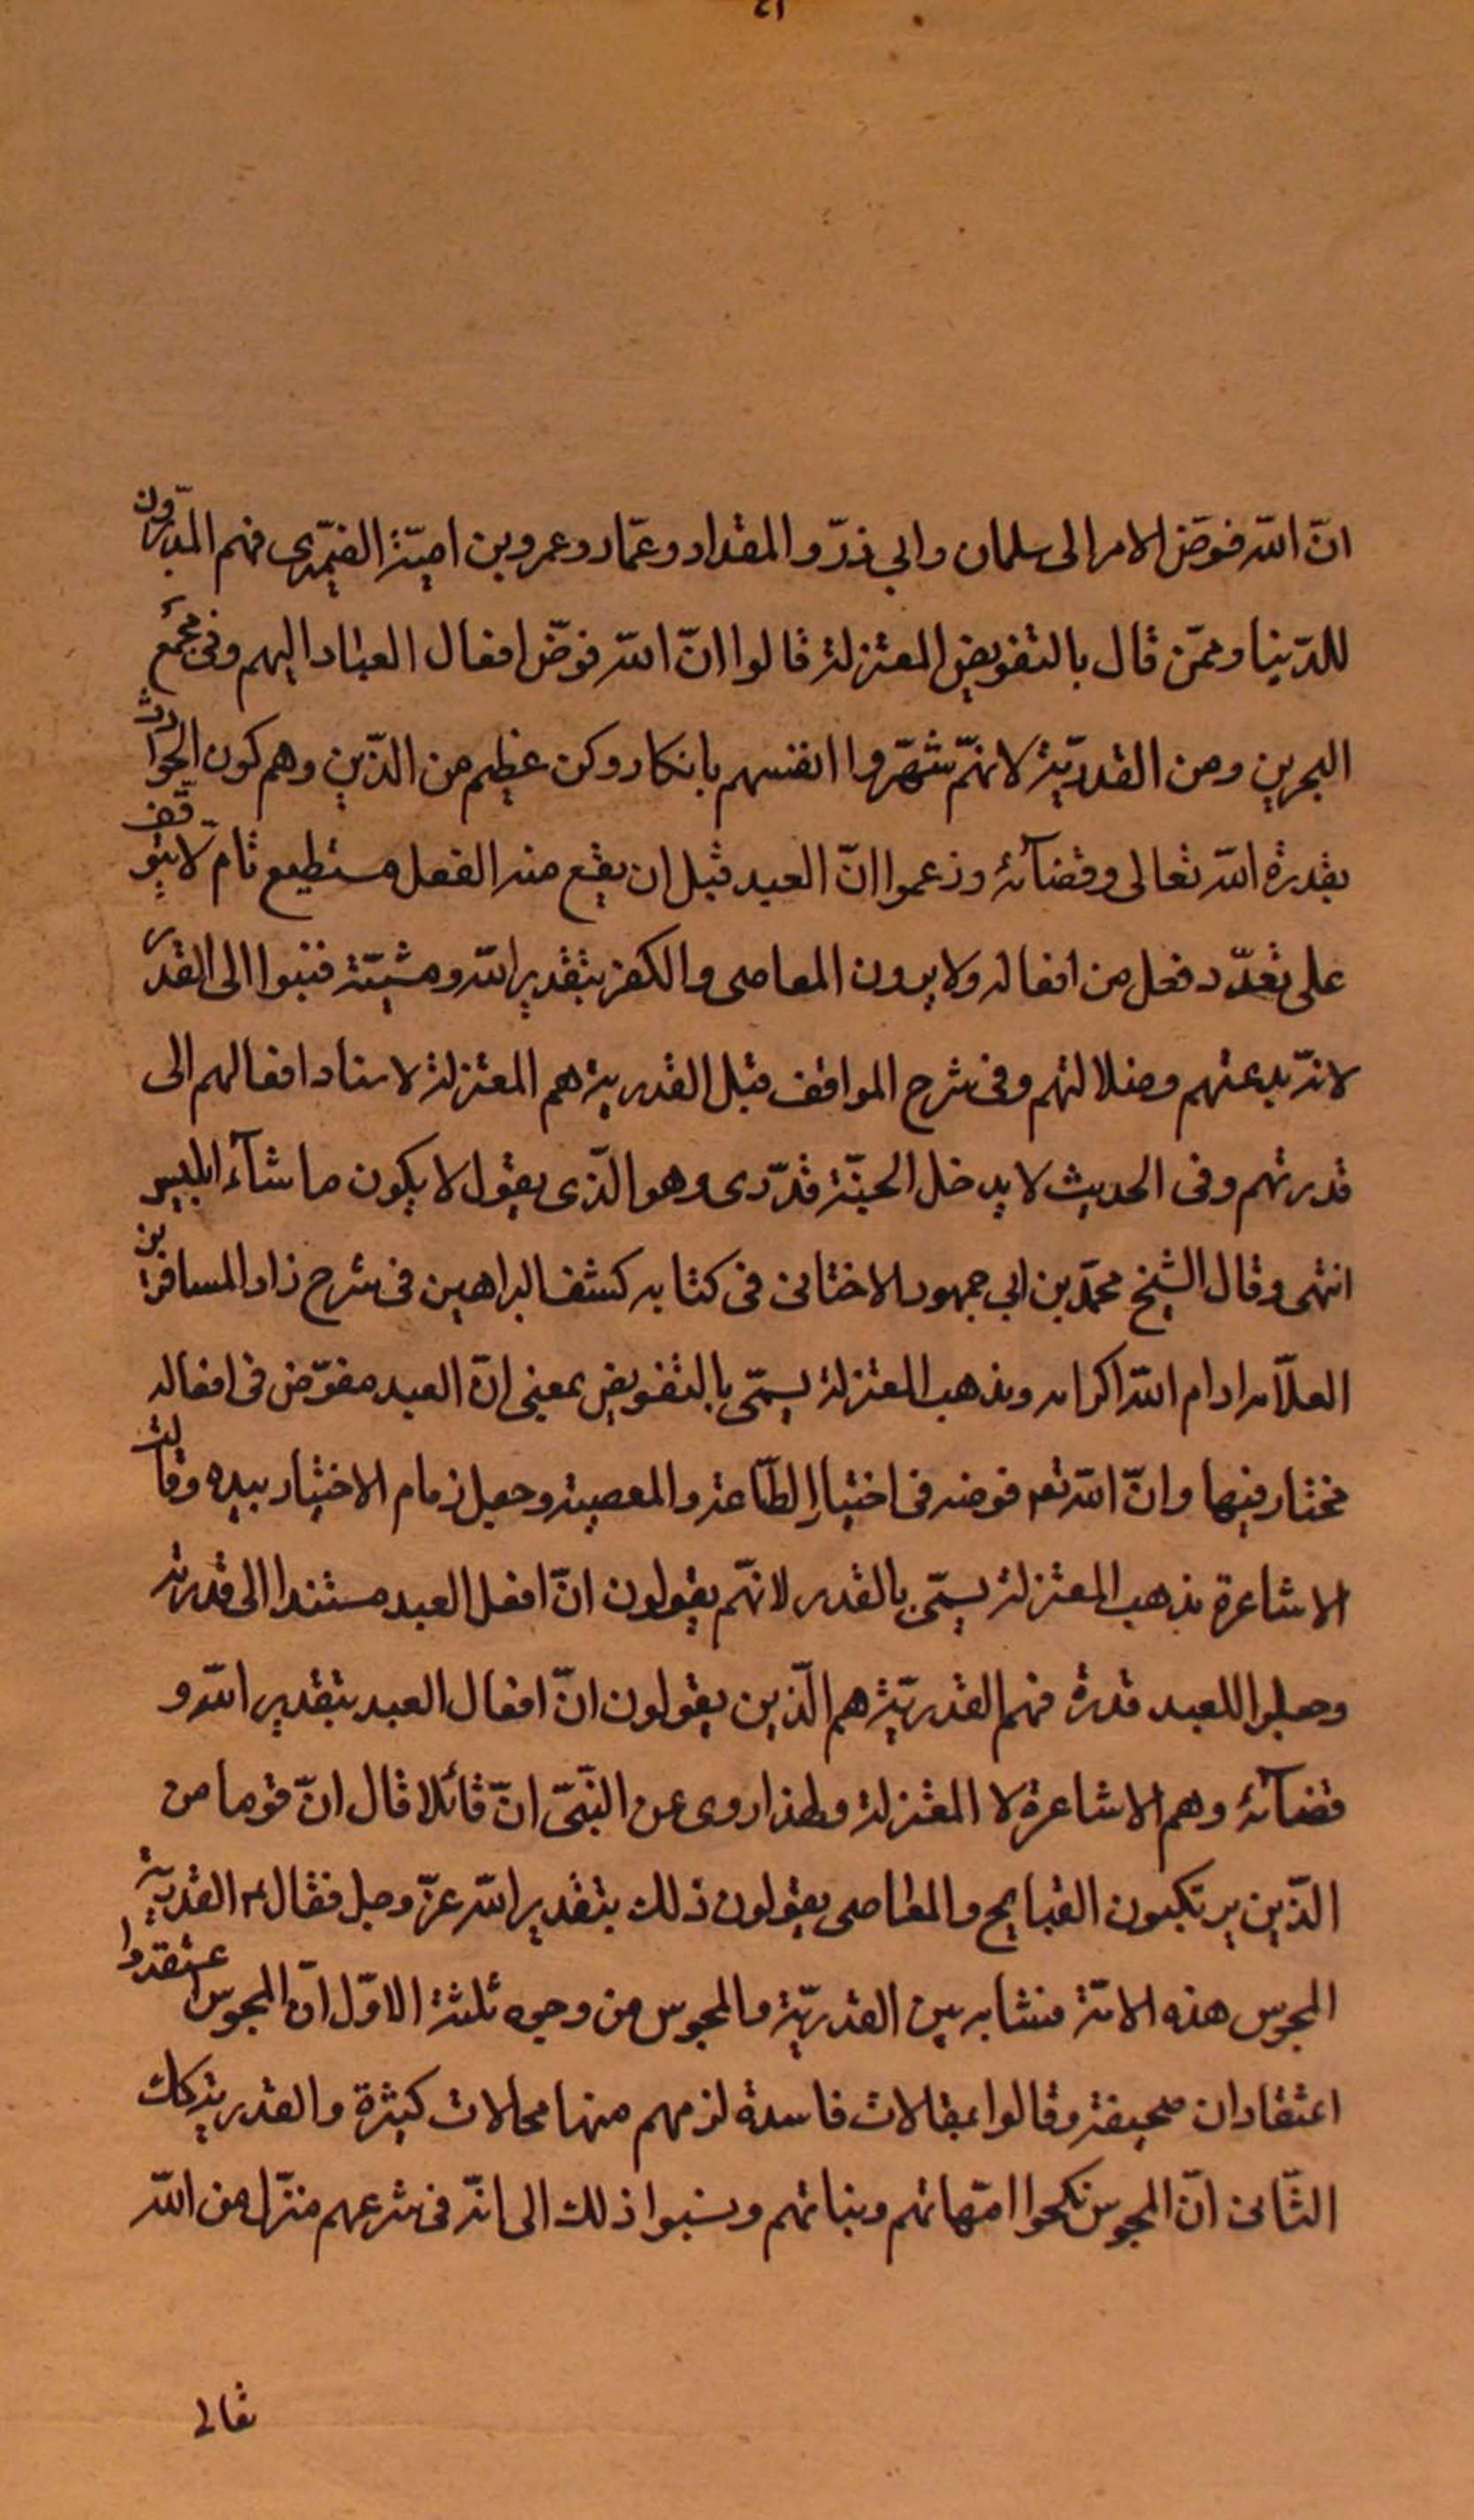 انّ الله فوّض الامر الى سلمان وابي ذرّ والمقداد وعمّار وعمرو بن اميّة الضيمّرى فهم المدبّرون
للدّنيا وممّن قال بالتفويض المعتزلة قالوا انّ الله فوّض افعال العباد اليهم وفى مجمع
البحرين ومن القدريّة لانهّم شهّروا انفسهم بانكار ركن عظيم من الدّين وهم كون الحوادث
بقدرة الله تعالى وقضآئه وزعموا انّ العبد قبل ان يقع منه الفعل مستطيع تامّ لا يتوقّف
على تعدّد فعل من افعاله ولا يرون المعاصى والكفر بتقدير الله ومشيّته فنبوا الى القدر
لانّه بدعتهم وضلالتهم وفى شرح المواقف قبل القدرية هم المعتزلة لاسناد افعالهم الى
قدرتهم وفى الحديث لا يدخل الجنّة قدّرى وهو الّذى يقول لا يكون ما شآء ابليس
انتهى وقال الشيخ محمّد بن ابي جمهور الاختائى فى كتابه كشف البراهين فى شرح زاد المسافرين
العلّامه ادام الله اكرامه ومذهب المعتزلة يسمّى بالتفويض بمعنى انّ العبد مفوّض فى افعاله
مختار فيها وانّ الله تعم فوضه فى اختيار الطّاعة والمعصية وجعل زمام الاختيار بيده وقالت
الاشاعرة مذهب المعتزلة يسمّى بالقدر لانهّم يقولون انّ افعل العبد مستندا الى قدرته
وجعلوا للعبد قدرة فهم القدريّة هم الّذين يقولون انّ افعال العبد بتقدير الله و
قضآئه وهم الاشاعرة لا المعتزلة ولهذا روى عن النّبىّ انّ قائلا قال انّ قوما من
الّذين يرتكبون القبايح والمعاصى يقولون ذلك بتقدير الله عزّ وجل فقال م القدرية
المجوس هذه الامّة فتشابه بين القدريّة والمجوس من وجوه ثلثة الاوّل انّ المجوس اعتقدوا
اعتقادات صحيفة وقالوا بمقالات فاسدة لزمهم منها محالات كثيرة والقدرية كك
الثّانى انّ المجوس نكحوا امّهاتهم وبناتهم ونسبوا ذلك الى انّه فى شرعهم منزّل من الله
تعالى